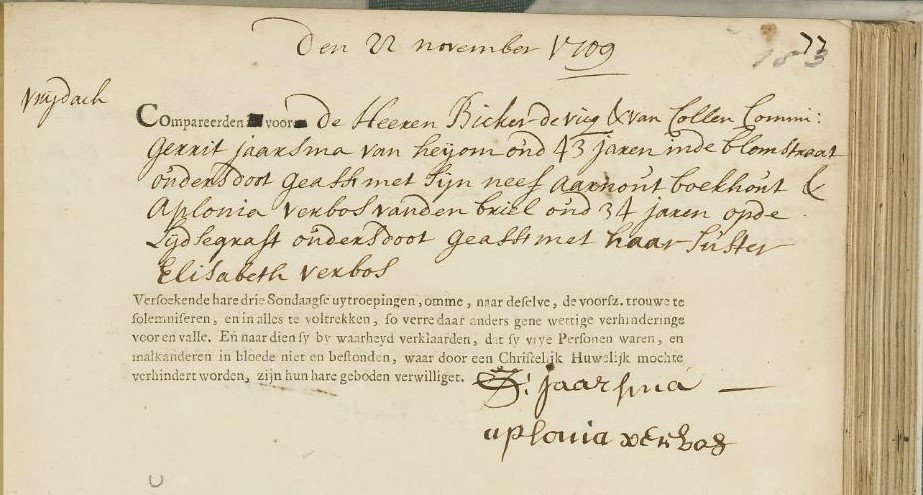 Den 22 november 1709
77
183
vrijdach
Compareerden voor De Heeren Bicker de vrij & van Collen Commi:
Gerrit jaarsma van heyom oud 43 jaren inde blomstraat
ouders doot geasst met Sijn neef aarnout boekhout &
Aplonia verbos vanden briel oud 34 jaren opde
Lijdsegraft ouders doot geasst met haar Suster
Elisabeth verbos
Versoekende hare drie Sondaagse uytroepingen, omme, naar deselve, de voorsz. trouwe te
solemniseren, en in alles te voltrekken, so verre daar anders gene wettige verhinderinge
voor en valle. En naar dien sy by waarheyd verklaarden, dat sy vrye Personen waren, en
malkanderen in bloede niet en bestonden, waar door een Christelijk Huwelijk mochte
verhindert worden, zijn hun hare geboden verwilliget.
G: jaarsma
aplonia verbos